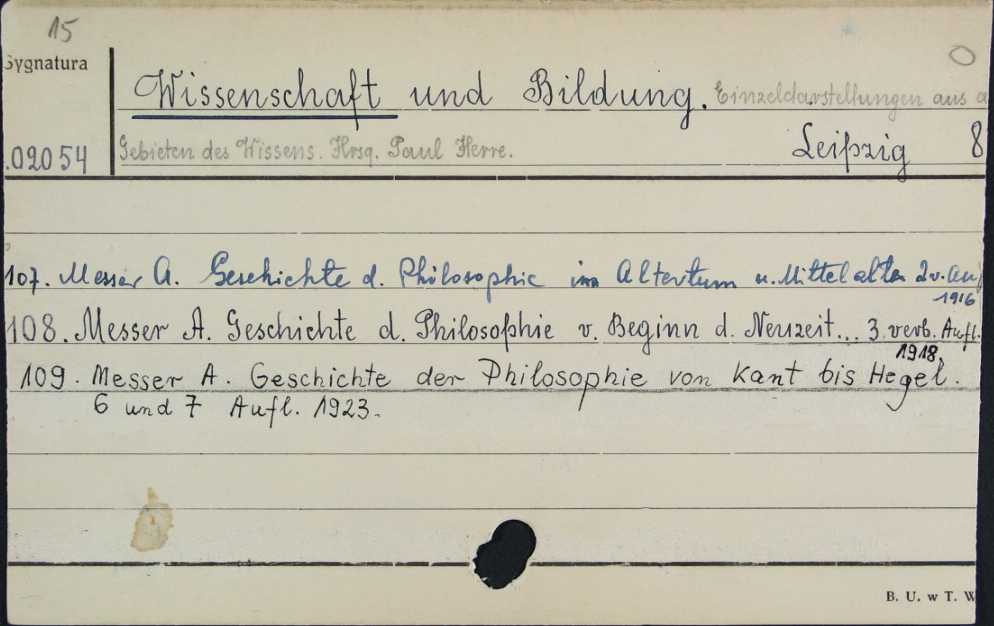 15
Sygnatura
O
Wissenschaft und Bildung. Einzeldarstellungen aus a
.02054 Gebieten des Wissens. Hrsg. Paul Herre. Leipzig 8
107. Messer A. Geschichte d. Philosophie im Altertum u. Mittelalter 2 v. Auf
1916
108. Messer A. Geschichte d. Philosophie v. Beginn d. Neuzeit... 3. verb. Aufl.
1918
109. Messer A. Geschichte der Philosophie von Kant bis Hegel.
6 und 7 Aufl. 1923.
B. U. w T. W